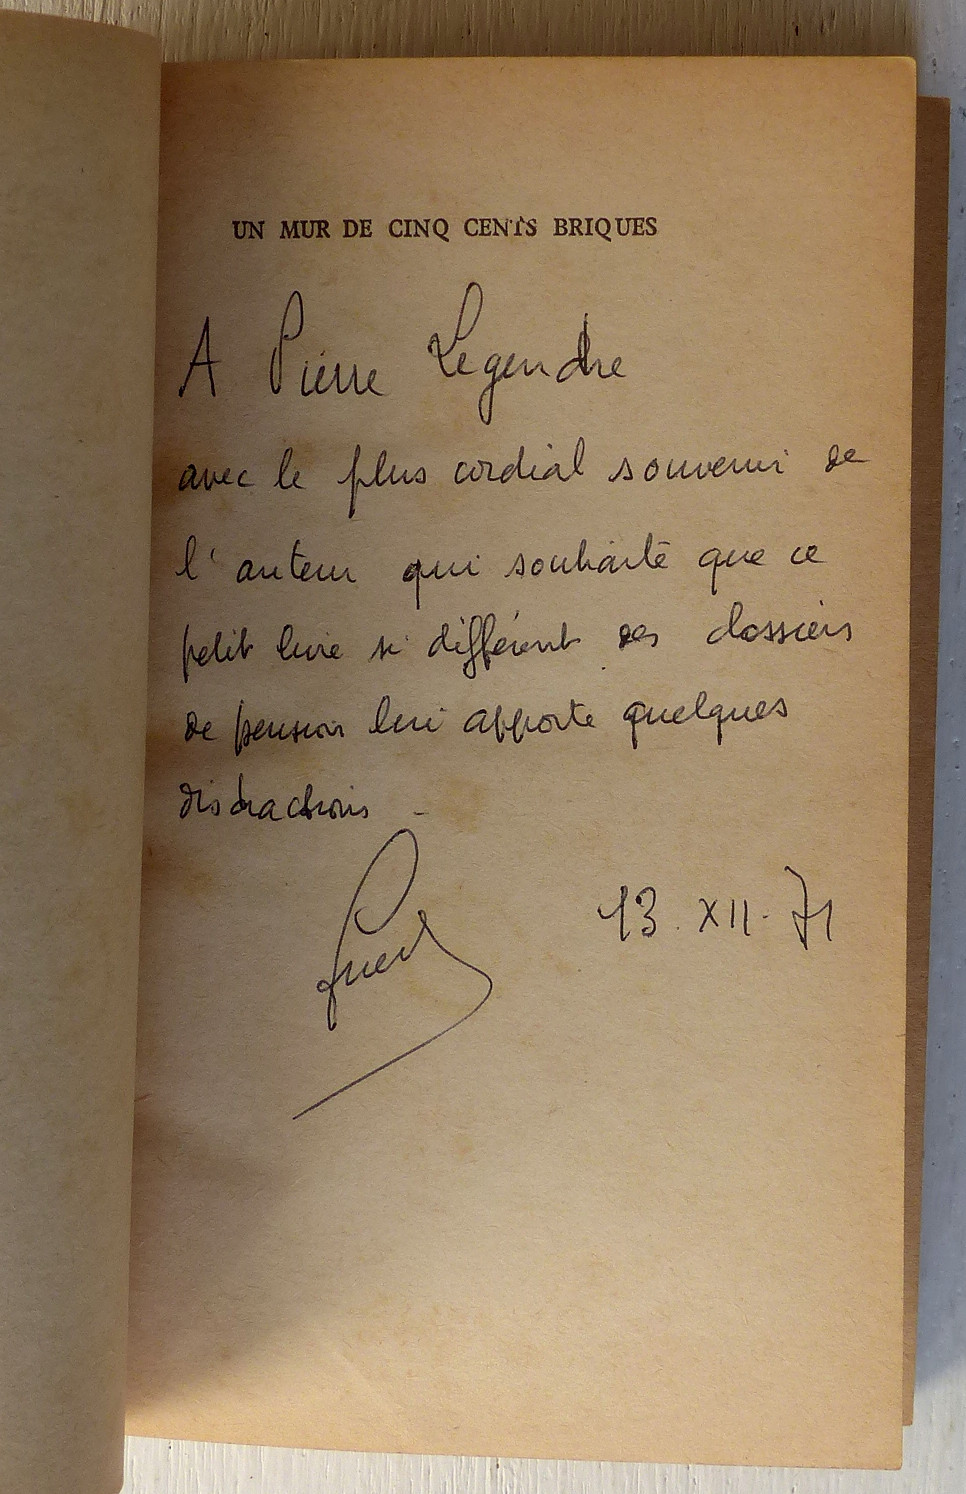 UN MUR DE CINQ CENTS BRIQUES
A Pierre Legendre
avec le plus cordial souvenir de
l'auteur qui souhaite que ce
petit livre si différent des dossiers
de pension lui apporte quelques
distractions
13. XII. 71